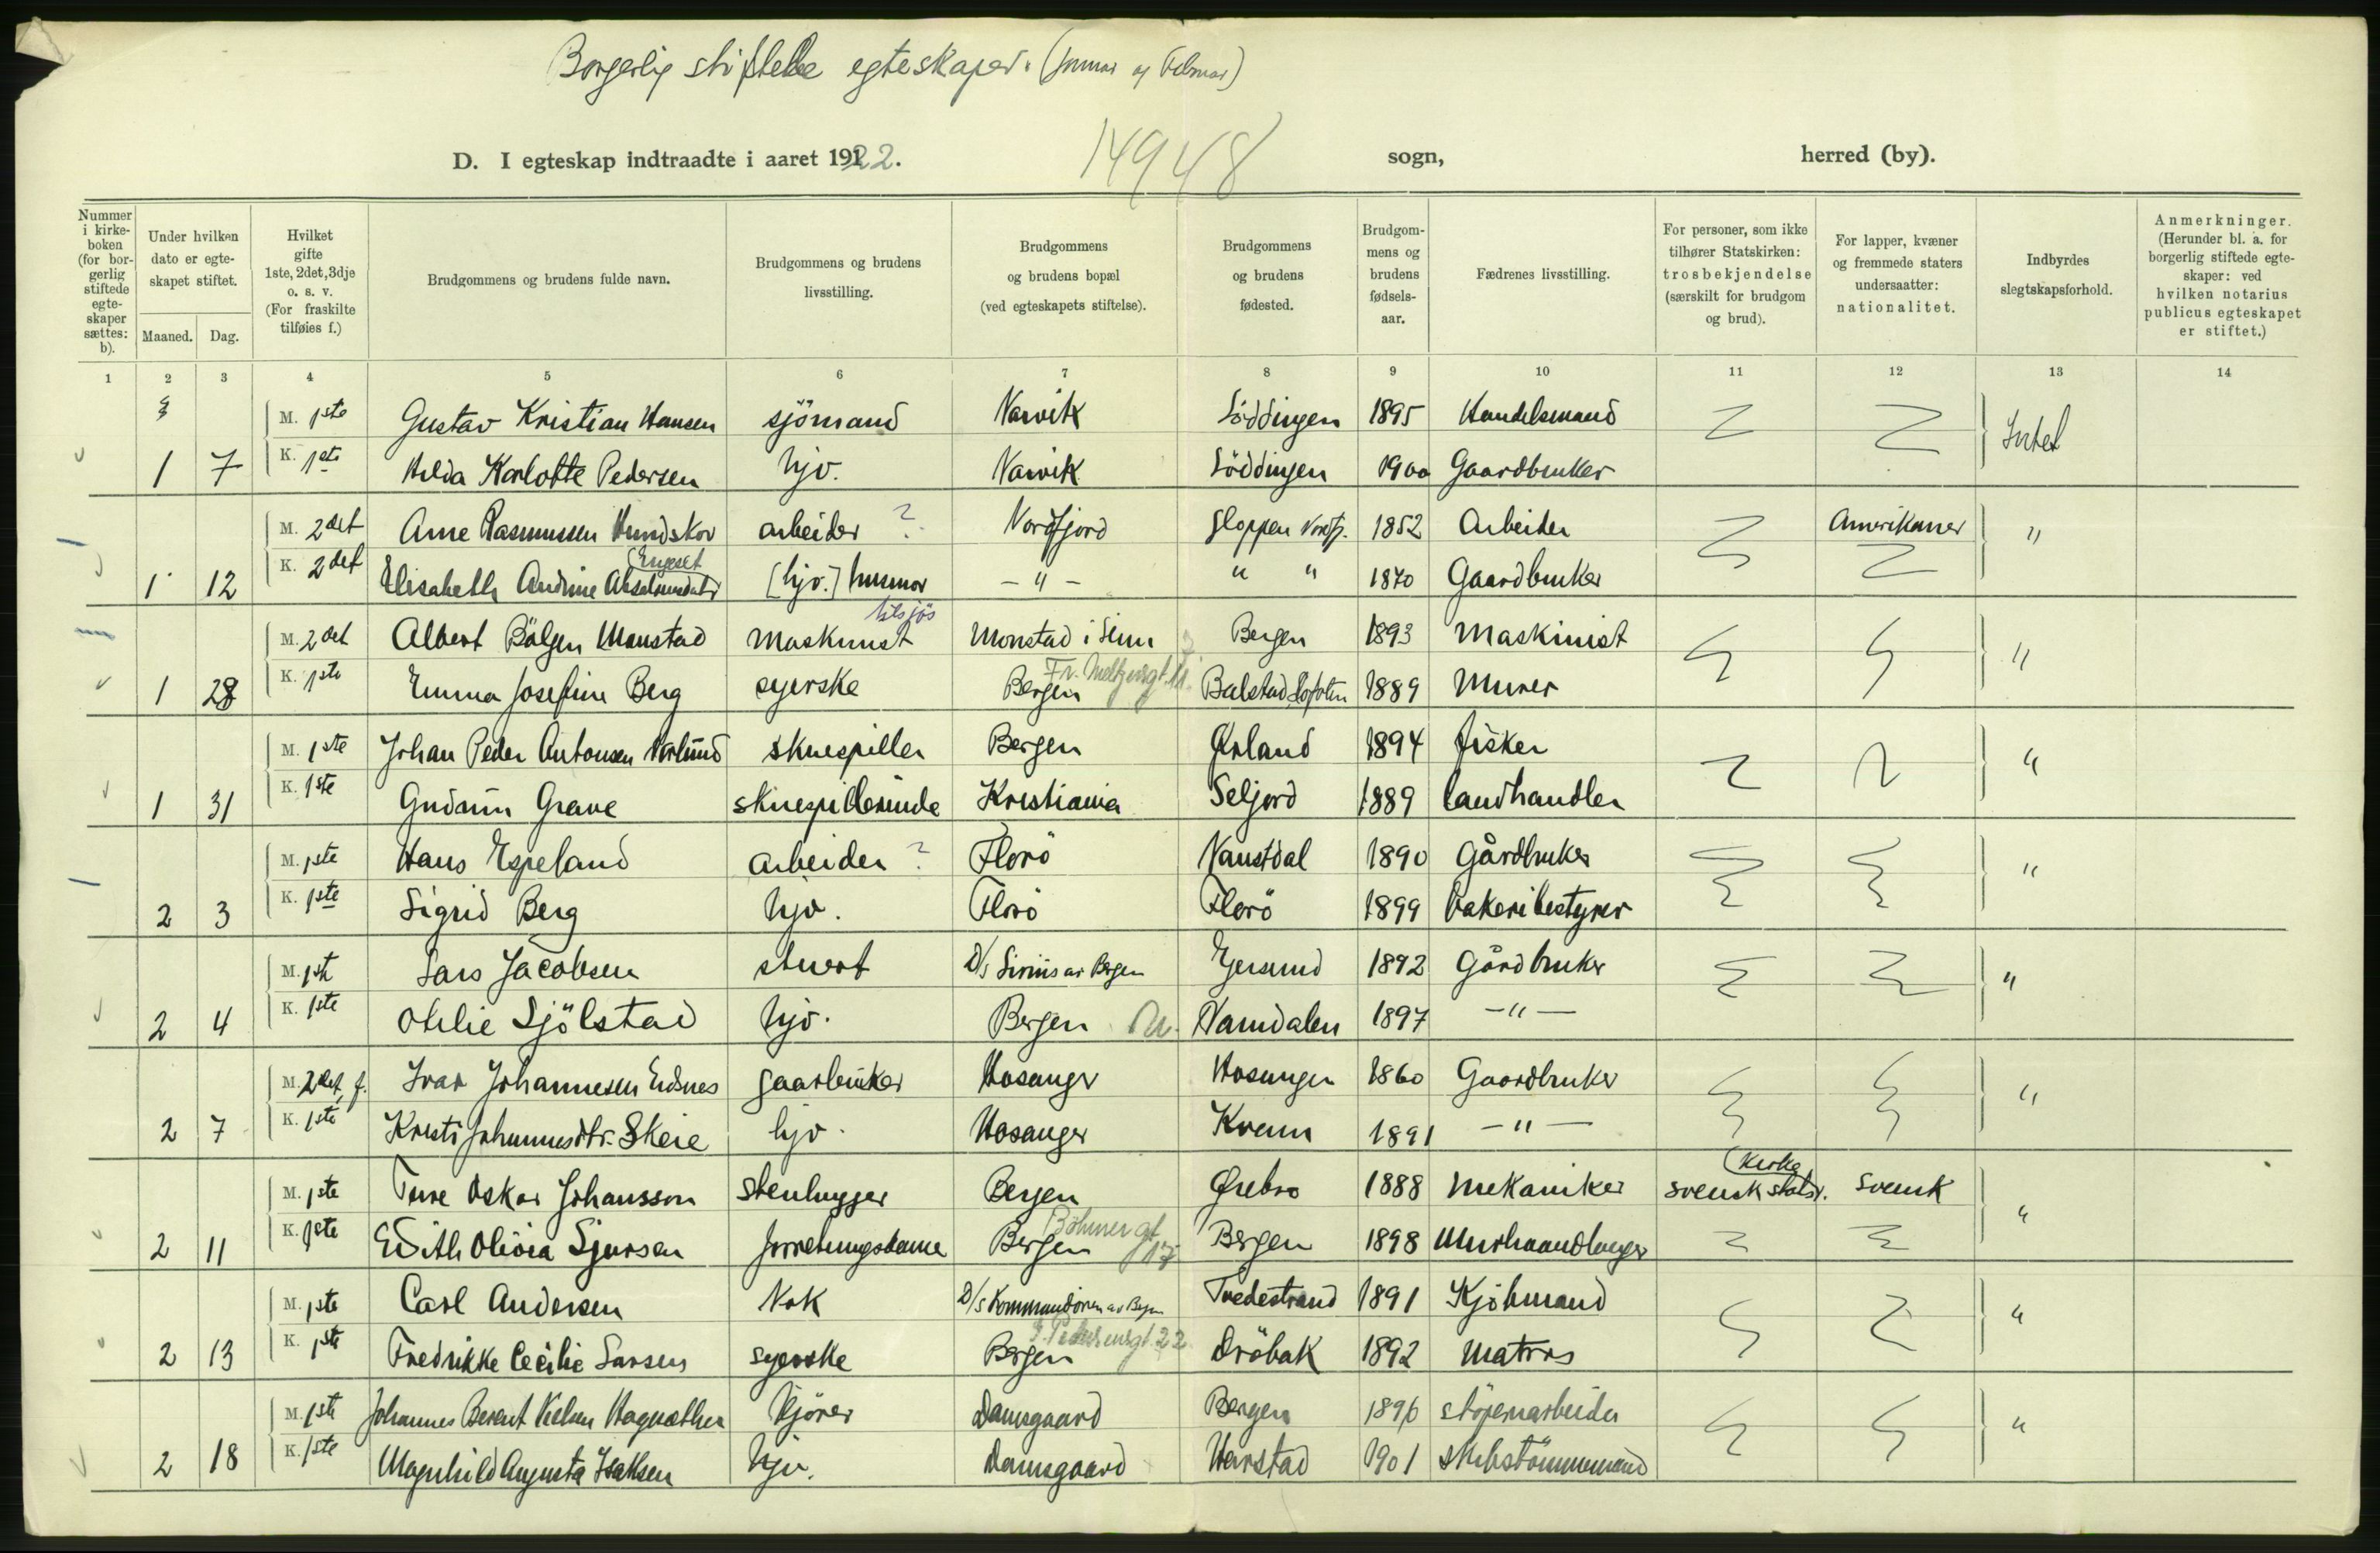 Borgerlig stiftede egteskaper. (Januar og Februar)
D. I egteskap indtraadte i aaret 1922. 14948 sogn, herred (by).
Nummer i kirkeboken (for borgerlig stiftede egteskaper sættes: b).
Under hvilken dato er egteskapet stiftet.
Maaned. Dag.
Hvilket gifte 1ste, 2det, 3dje o. s. v. (For fraskilte tilføies f.)
Brudgommens og brudens fulde navn.
Brudgommens og brudens livsstilling.
Brudgommens og brudens bopæl (ved egteskapets stiftelse).
Brudgommens og brudens fødested.
Brudgommens og brudens fødselsaar.
Fædrenes livsstilling.
For personer, som ikke tilhører Statskirken: trosbekjendelse (særskilt for brudgom og brud).
For lapper, kvæner og fremmede staters undersaatter: nationalitet.
Indbyrdes slegtskapsforhold.
Anmerkninger. (Herunder bl. a. for borgerlig stiftede egteskaper: ved hvilken notarius publicus egteskapet er stiftet.)
1 2 3 4 5 6 7 8 9 10 11 12 13 14
M. 1ste Gustav Kristian Hansen sjömand Narvik Löddingen 1895 Handelsmand Intet
1 7 K. 1ste Hilda Karlotte Pedersen hjv. Narvik Löddingen 1900 Gaardbruker
M. 2det Arne Rasmussen Hundskor arbeider ? Nordfjord Gloppen Nordfj. 1852 Arbeider Amerikaner "
Engeset
1 12 K. 2det Elisabeth Andrine Absalonsdatr [hjv.] husmor - " - " " 1870 Gaardbruker
tilsjös
M. 2det Albert Bölgen Monstad Maskinist Monstad i Bergen 1893 Maskinist "
Fr. Meltzersgt. 11
1 28 K. 1ste Emma Josefine Berg syerske Bergen Balstad Lofoten 1889 Murer
M. 1ste Johan Peder Antonsen Norlund skuespiller Bergen Ørland 1894 fisker "
1 31 K. 1ste Gudrun Grave skuespillerinde Kristiania Seljord 1889 landhandler
M. 1ste Hans Espeland arbeider ? Florö Naustdal 1890 Gårdbruker "
2 3 K. 1ste Sigrid Berg hjv. Florö Florö 1899 bakeribestyrer
M. 1ste Lars Jacobsen stuert D/s Sirius av Bergen Egersund 1892 Gårdbruker "
2 4 K. 1ste Otelie Sjölstad hjv. Bergen Namdalen 1897 - " -
M. 2det f. Ivar Johannesen Eidsnes gaarbruker Hosanger Hosanger 1860 Gaardbruker "
2 7 K. 1ste Kristi Johannesdtr. Skeie hjv. Hosanger Kvam 1891 - " -
kirke
M. 1ste Ture Oskar Johansson stenhugger Bergen Ørebro 1888 Mekaniker svensk stats. svensk "
Böhmer gt 17
2 11 K. 1ste Edith Olivia Sjursen forretningsdame Bergen Bergen 1898 Murhaandlanger
M. 1ste Carl Andersen Kok D/s Kommandören av Bergen Tvedestrand 1891 Kjöbmand "
22
2 13 K. 1ste Fredrikke Cecilie Larsen syerske Bergen Dröbak 1892 Matros
M. 1ste Johannes Berent Nielsen kjörer Damsgaard Bergen 1896 störjernarbeider "
2 18 K. 1ste Magnhild Augusta Isaksen hjv. Damsgaard Harstad 1901 skibstömmermand